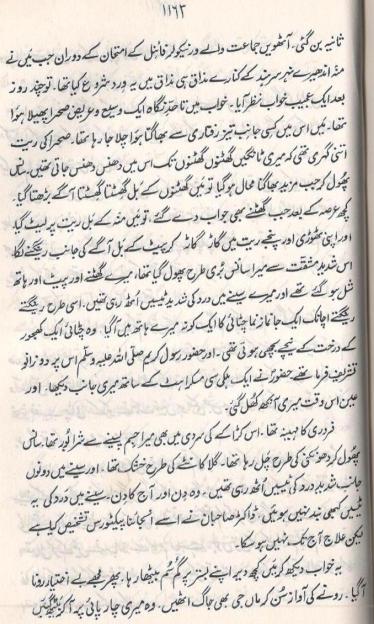 ۱۱۶۳
ثانیہ بن گئی۔ آٹھویں جماعت والے ورنیکولر فائنل کے امتحان کے دوران جب میں نے
منہ اندھیرے نہر سرہند کے کنارے مذاق ہی مذاق میں یہ ورد شروع کیا تھا۔ تو چند روز
بعد ایک عجیب خواب نظر آیا۔ خواب میں تاحدِ نگاہ ایک وسیع و عریض صحرا پھیلا ہوا
تھا۔ میں اس میں کسی جانب تیز رفتاری سے بھاگتا ہوا چلا جا رہا تھا۔ صحرا کی ریت
اتنی گہری تھی کہ میری ٹانگیں گھٹنوں گھٹنوں تک اس میں دھنس دھنس جاتی تھیں۔ سانس
پھول کر جب مزید بھاگنا محال ہو گیا تو میں گھٹنوں کے بل گھسٹتا گھسٹتا آگے بڑھتا گیا۔
کچھ عرصہ کے بعد جب گھٹنے بھی جواب دے گئے۔ تو میں منہ کے بل ریت پر لیٹ گیا۔
اور اپنی ٹھوڑی اور پنجے ریت میں گاڑ گاڑ کر پیٹ کے بل آگے کی جانب رینگنے لگا۔
اس شدید مشقت سے میرا سانس بُری طرح پھول گیا تھا، میرے گھٹنے اور پیٹ اور ہاتھ
شل ہو گئے تھے اور میرے سینے میں درد کی شدید ٹیسیں اٹھ رہی تھیں۔ اسی طرح رینگتے
رینگتے اچانک ایک جائے نماز نما چٹائی کا ایک کونہ میرے ہاتھ میں آگیا۔ وہ چٹائی ایک کھجور
کے درخت کے نیچے بچھی ہوئی تھی۔ اور حضور رسول کریم صلی اللہ علیہ وسلم اس پر دو زانو
تشریف فرما تھے حضورؐ نے ایک ہلکی سی مسکراہٹ کے ساتھ میری جانب دیکھا۔ اور
عین اُس وقت میری آنکھ کھل گئی۔
فروری کا مہینہ تھا۔ اس کڑاکے کی سردی میں بھی میرا جسم پسینے سے شرابور تھا۔ سانس
پھول کر دھونکنی کی طرح چل رہا تھا۔ گلا کانٹے کی طرح خشک تھا۔ اور سینے میں دونوں
جانب شدید درد کی ٹیسیں اٹھ رہی تھیں۔ وہ دن اور آج کا دن۔ سینے میں درد کی یہ
ٹیسیں کبھی بند نہیں ہوئیں۔ ڈاکٹر صاحبان نے اسے انجائنا پیکٹورس تشخیص کیا ہے
لیکن علاج آج تک نہیں ہو سکا۔
یہ خواب دیکھ کر میں کچھ دیر اپنے بستر پر گم سم بیٹھا رہا۔ پھر مجھے بے اختیار رونا
آگیا۔ رونے کی آواز سُن کر ماں جی بھی جاگ اٹھیں۔ وہ میری چارپائی پر آکر بیٹھ گئیں